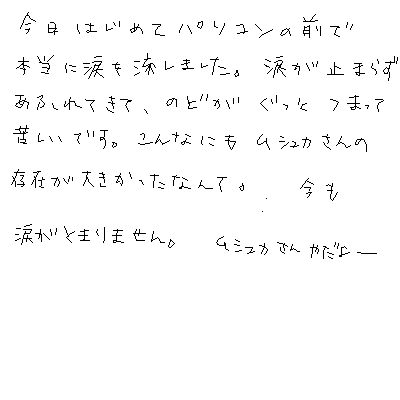 今日はじめてパソコンの前で
本当に涙を流しました。涙が止まらず
あふれてきて、のどがぐっとつまって
苦しいです。こんなにもムシュカさんの
存在が大きかったなんて。今も
涙がとまりません。ムシュカさんやだよー